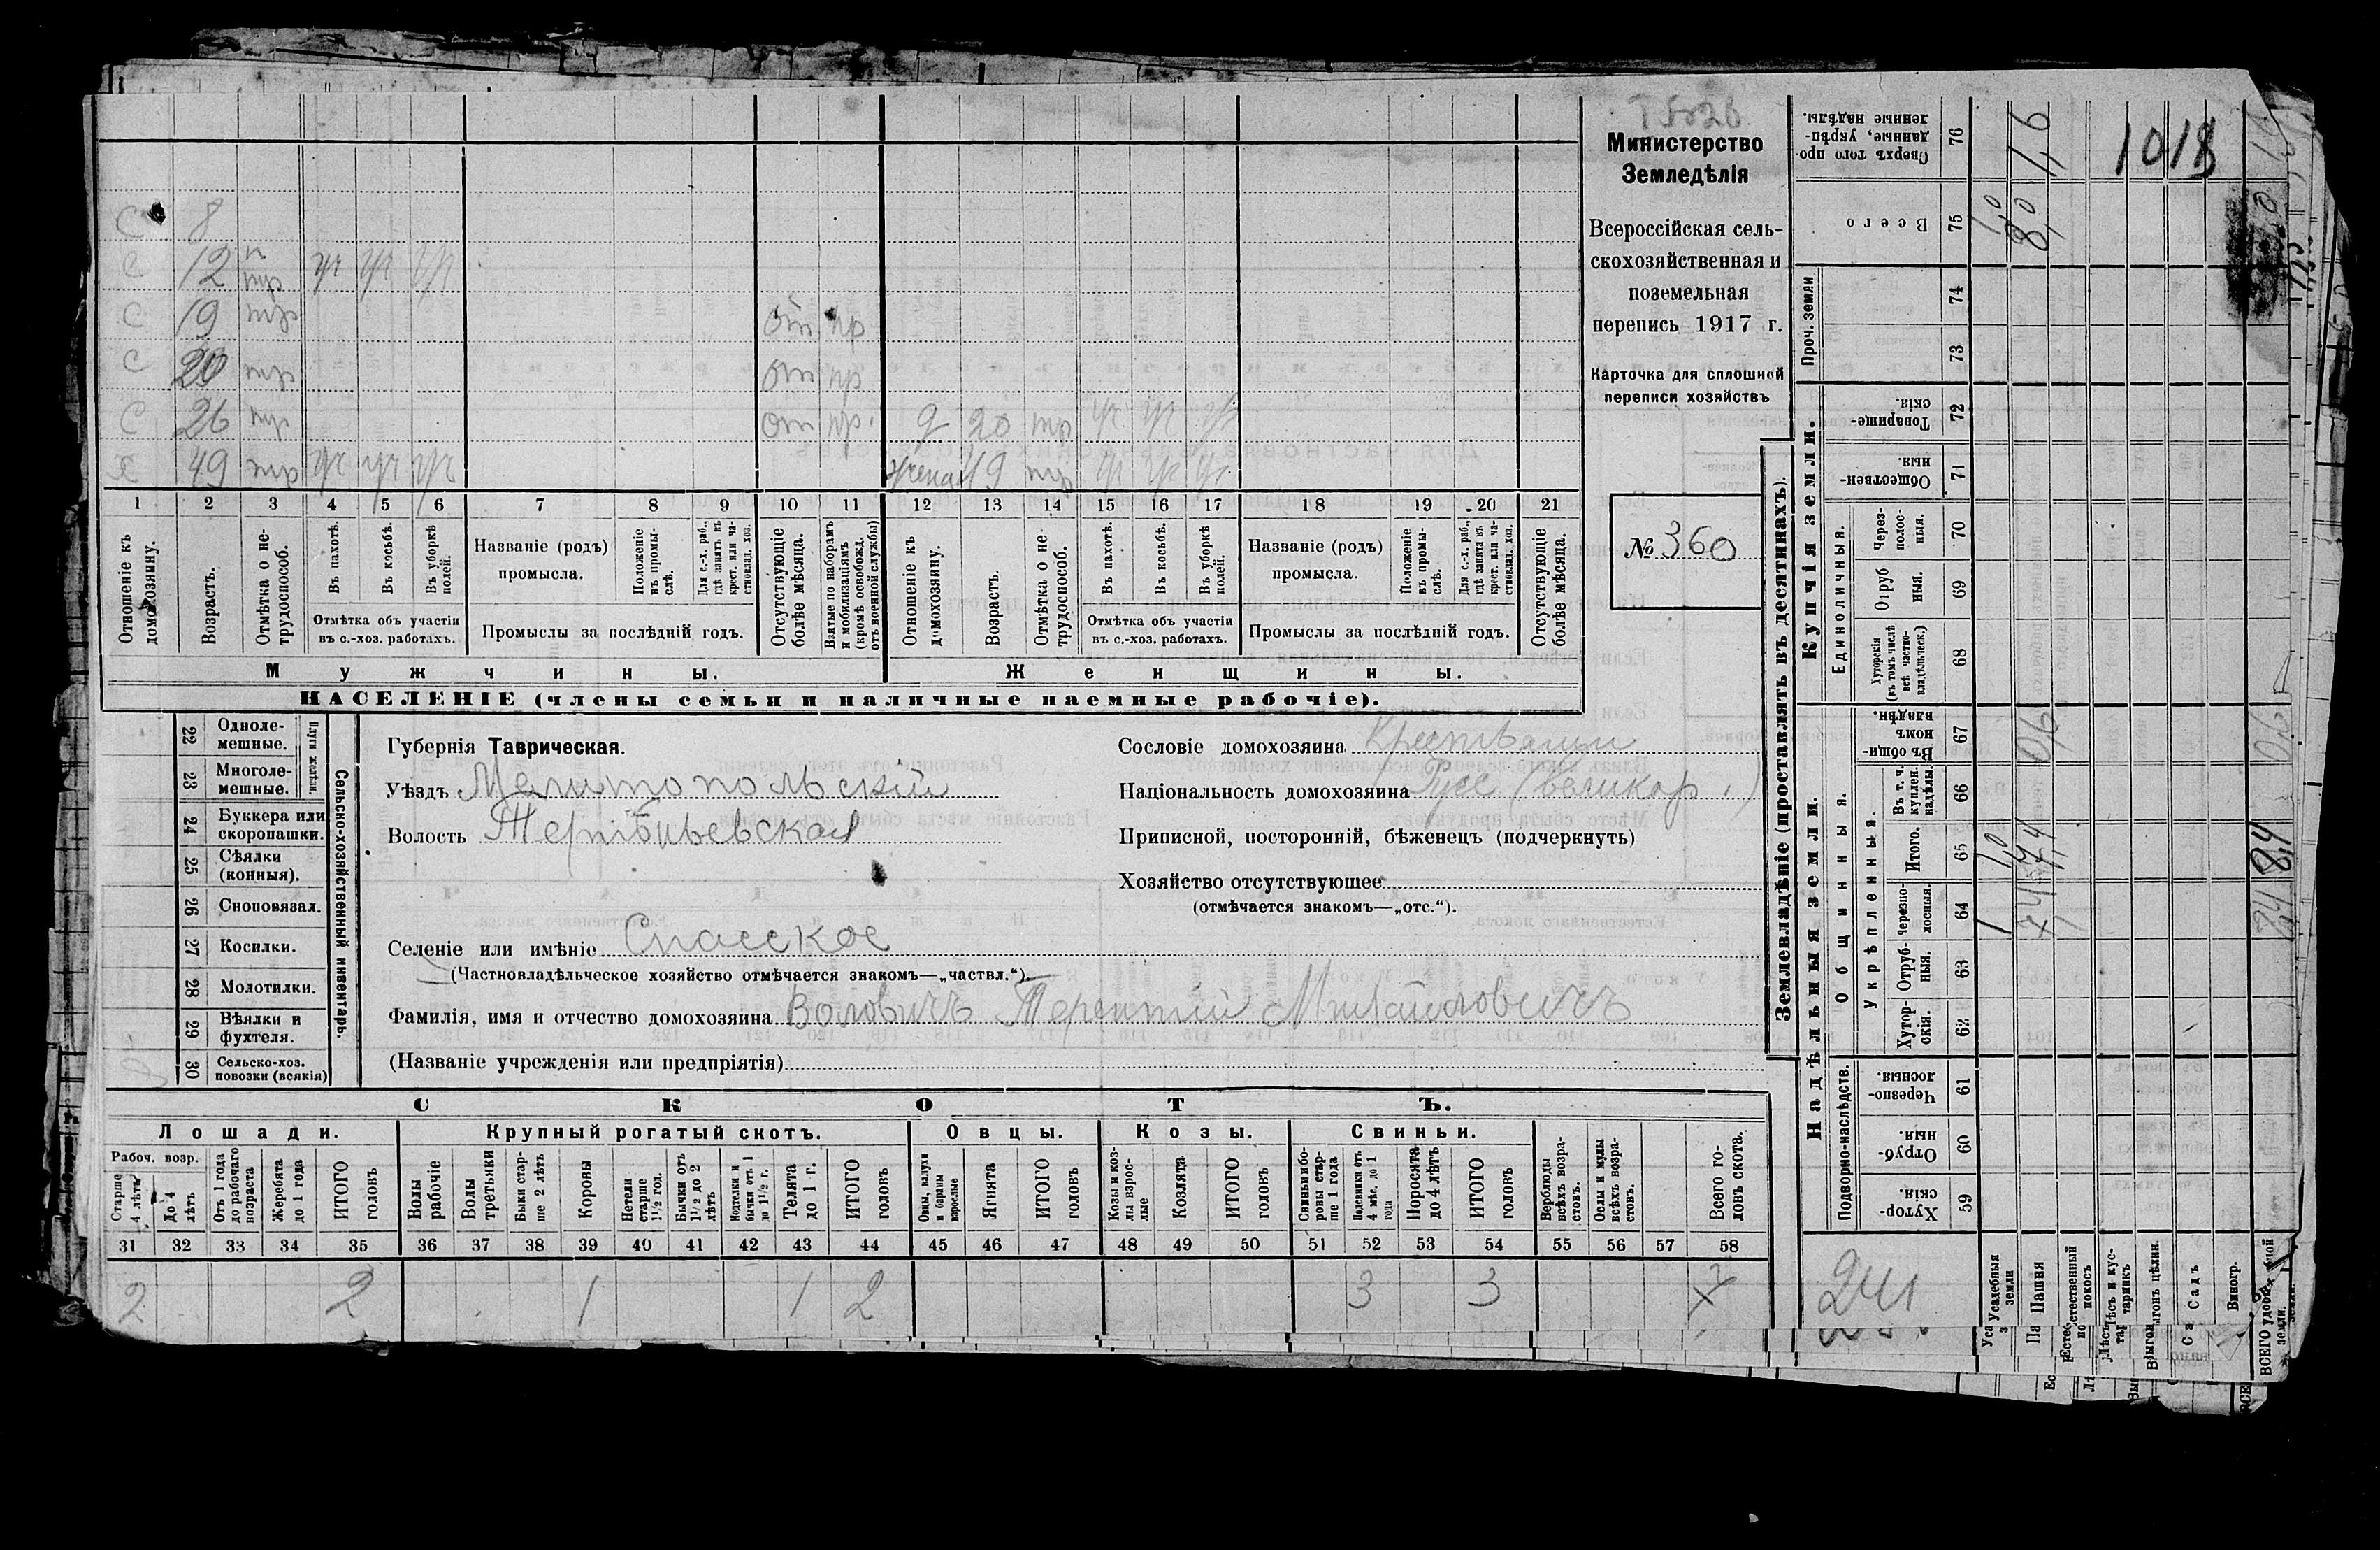 Министерство
Земледѣлія
Всероссійская сель-
скохозяйственная и
поземельная
перепись 1917 г.
Карточка для сплошной
переписи хозяйствъ
№ 360
С 8
С 12 н тр уч уч уч
С 19 тр от пр
С 20 тр от пр
С 26 тр от пр. д 20 тр уч уч уч
х 49 тр уч уч уч жена 49 тр уч уч уч
1 2 3 4 5 6 7 8 9 10 11 12 13 14 15 16 17 18 19 20 21
Отношеніе къ домохозяину.
Возрастъ.
Отмѣтка о не-трудоспособ.
Въ пахотѣ.
Въ косьбѣ.
Въ уборкѣ полей.
Отмѣтка объ участіи въ с.-хоз. работахъ.
Названіе (родъ) промысла.
Положеніе въ промы-слѣ.
Для с.-х. раб., гдѣ занятъ въ крест. или ча-стновлад. хоз.
Промыслы за послѣдній годъ.
Отсутствующіе болѣе мѣсяца.
Взятые по наборамъ и мобилизаціямъ (кромѣ освобожд. отъ военной службы)
Отношеніе къ домохозяину.
Возрастъ.
Отмѣтка о не-трудоспособ.
Въ пахотѣ.
Въ косьбѣ.
Въ уборкѣ полей.
Отмѣтка объ участіи въ с.-хоз. работахъ.
Названіе (родъ) промысла.
Положеніе въ промы-слѣ.
Для с.-х. раб., гдѣ занята въ крест. или ча-стновлад. хоз.
Промыслы за послѣдній годъ.
Отсутствующіе болѣе мѣсяца.
Мужчины. Женщины.
НАСЕЛЕНІЕ (члены семьи и наличные наемные рабочіе).
22 Одноле-мешные.
23 Многоле-мешные.
Плуги желѣзн.
24 Буккера или скоропашки.
25 Сѣялки (конныя).
26 Сноповязал.
27 Косилки.
28 Молотилки.
29 Вѣялки и фухтеля.
30 Сельско-хоз. повозки (всякія)
Сельско-хозяйственный инвентарь.
Губернія Таврическая.
Уѣздъ Мелитопольскій
Волость Терпѣньевская
Селеніе или имѣніе Спасское
(Частновладѣльческое хозяйство отмѣчается знакомъ—„частвл.“)
Фамилія, имя и отчество домохозяина Воловичъ Терентій Михайловичъ
(Названіе учрежденія или предпріятія)
Сословіе домохозяина Крестьянин
Національность домохозяина Русс (великор.)
Приписной, посторонній, бѣженецъ (подчеркнуть)
Хозяйство отсутствующее
(отмѣчается знакомъ—„отс.“).
СКОТЪ.
Лошади. Крупный рогатый скотъ. Овцы. Козы. Свиньи.
Рабоч. возр.
Старше 4 лѣтъ
До 4 лѣтъ
Отъ 1 года до рабочаго возраста
Жеребята до 1 года
ИТОГО головъ
Волы рабочіе
Волы третьяки
Быки стар-ше 2 лѣтъ
Коровы
Нетели старше 1½ год.
Бычки отъ 1½ до 2 лѣтъ
Подтелки и бычки отъ 1 до 1½ г.
Телята до 1 г.
ИТОГО головъ
Овцы, валухи и бараны взрослые
Ягнята
ИТОГО головъ
Козы и коз-лы взрос-лые
Козлята
ИТОГО головъ
Свиньи и бо-ровы стар-ше 1 года
Подсвинки отъ 4 мѣс. до 1 года
Поросята до 4 лѣтъ
ИТОГО головъ
Верблюды всѣхъ возра-стовъ.
Ослы и мулы всѣхъ возра-стовъ.
Всего го-ловъ скота.
31 32 33 34 35 36 37 38 39 40 41 42 43 44 45 46 47 48 49 50 51 52 53 54 55 56 57 58
2 2 1 1 2 3 3 7
Землевладѣніе (проставлять въ десятинахъ).
Надѣльныя земли. Купчія земли.
Подворно-наслѣдств.
Общинныя.
Укрѣпленныя.
Единоличныя.
Проч. земли
Сверхъ того про-данные, укрѣп-ленные надѣлы. 76
Всего 75
74
73
Товарище-скія. 72
Обществен-ныя. 71
Через-полос-ныя. 70
Отруб ныя. 69
Хуторскія (въ томъ числѣ всѣ частно-владѣльческ.) 68
Въ общи-номъ владѣн. 67
Въ т. ч. куплен. надѣлы. 66
Итого. 65
Черезпо-лосныя. 64
Отруб-ныя. 63
Хутор-скія. 62
Черезпо-лосныя. 61
Отруб-ныя. 60
Хутор-скія. 59
Усадебныя земли
Пашня
Естественный покосъ
Лѣсъ и кус-тарникъ
Выгонъ цѣлин.
Садъ
Виногр.
ВСЕГО удобной земли.
1018
241
1,0
8,0
1,6
0,6
7,4
8,4